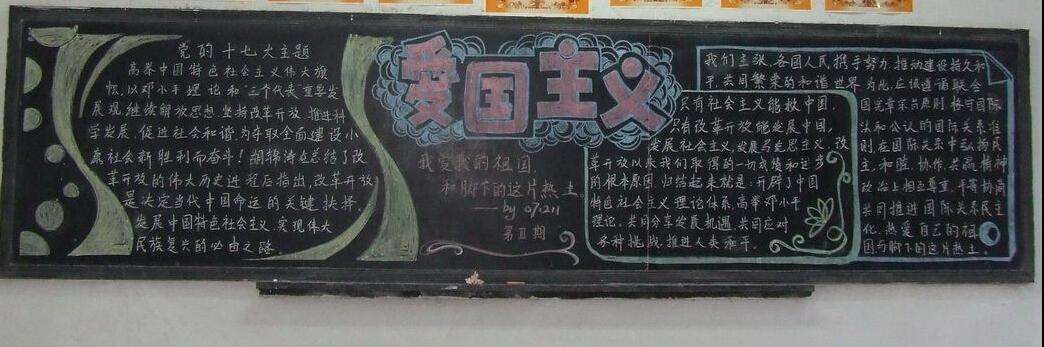 党的十七大主题
高举中国特色社会主义伟大旗
帜,以邓小平理论和"三个代表"重要
发展观,继续解放思想,坚持改革开放,推进科
学发展,促进社会和谐,为夺取全面建设小
康社会新胜利而奋斗!胡锦涛在总结了改
革开放的伟大历史进程后指出,改革开放
是决定当代中国命运的关键抉择,
发展中国特色社会主义、实现伟大
民族复兴的必由之路.
爱国主义
我爱我的祖国
和脚下的这片热土
——by 071211
第Ⅱ期
只有社会主义能救中国,
只有改革开放能发展中国,
发展社会主义、发展马克思主义,改
革开放以来我们取得的一切成绩和进步
的根本原因,归结起来就是:开辟了中国
特色社会主义理论体系,高举邓小平
理论,共同分享发展机遇,共同应对
各种挑战,推进人类和平.
我们主张,各国人民携手努力,推动建设持久和
平、共同繁荣的和谐世界.为此,应该遵循联合
国宪章宗旨原则,恪守国际
法和公认的国际关系准
则,在国际关系中弘扬民
主、和睦、协作、共赢精神
政治上相互尊重、平等协商
共同推进国际关系民主
化,热爱自己的祖
国与脚下的这片热土.